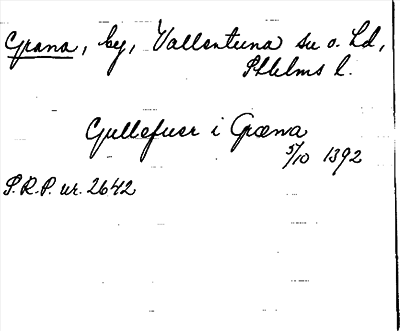 Grana, by, Vallentuna sn o. hd,
Sthlms l.
Gullefuer i Græna
5/10 1392
S.R.P. nr. 2642